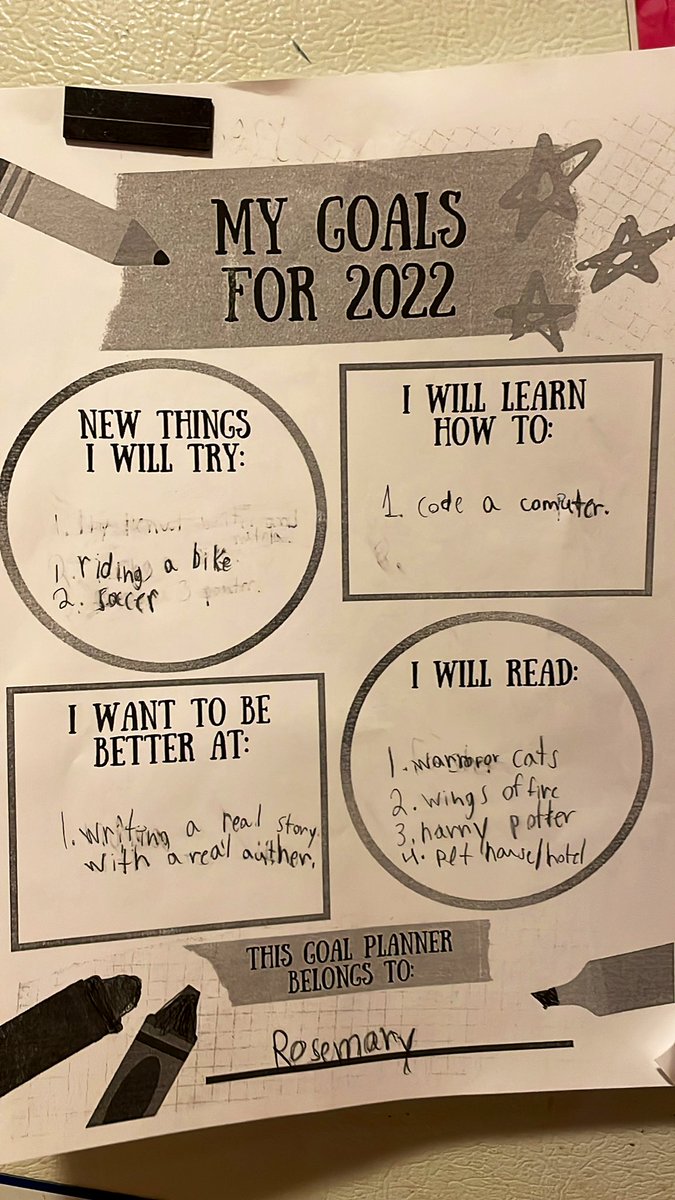 MY GOALS
FOR 2022
NEW THINGS
I WILL TRY:
1. riding a bike
2. soccer
I WILL LEARN
HOW TO:
1. code a computer.
I WANT TO BE
BETTER AT:
1. writing a real story
with a real auther.
I WILL READ:
1. warrior cats
2. wings of fire
3. harry potter
4. pet house/hotel
THIS GOAL PLANNER
BELONGS TO:
Rosemary